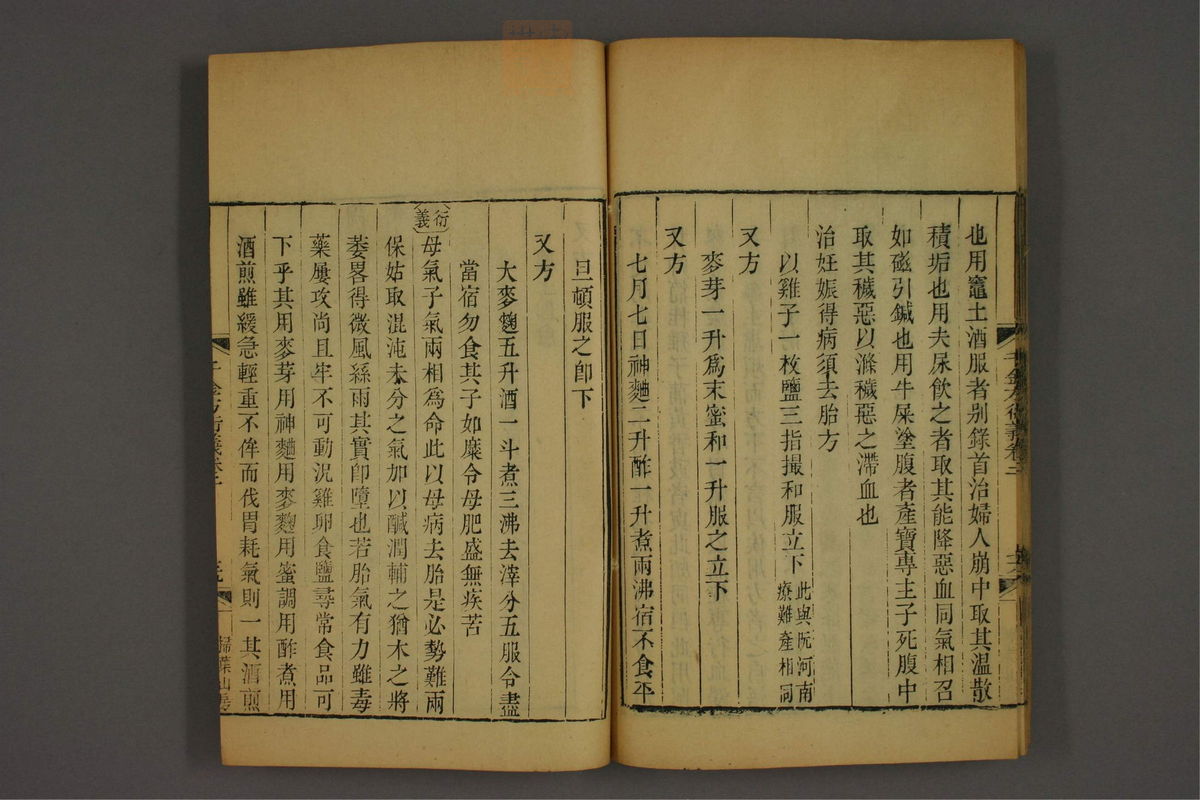 也用竈土酒服者别錄首治婦人崩中取其溫散
積垢也用夫尿飲之者取其能降惡血同氣相召
如磁引鍼也用牛屎塗腹者產寶專主子死腹中
取其穢惡以滌穢惡之滯血也
治妊娠得病須去胎方
以雞子一枚鹽三指撮和服立下此與阮河南療難產相同
又方
麥芽一升爲末蜜和一升服之立下
又方
七月七日神麯二升酢一升煮兩沸宿不食平
旦頓服之卽下
又方
大麥麯五升酒一斗煮三沸去滓分五服令盡
當宿勿食其子如糜令母肥盛無疾苦
衍義
母氣子氣兩相爲命此以母病去胎是必勢難兩
保姑取混沌未分之氣加以鹹潤輔之猶木之將
萎畧得微風絲雨其實卽墮也若胎氣有力雖毒
藥屢攻尚且牢不可動況雞卵食鹽尋常食品可
下乎其用麥芽用神麯用麥麯用蜜調用酢煮用
酒煎雖緩急輕重不侔而伐胃耗氣則一其酒煎
千金方衍義卷二
掃葉山房